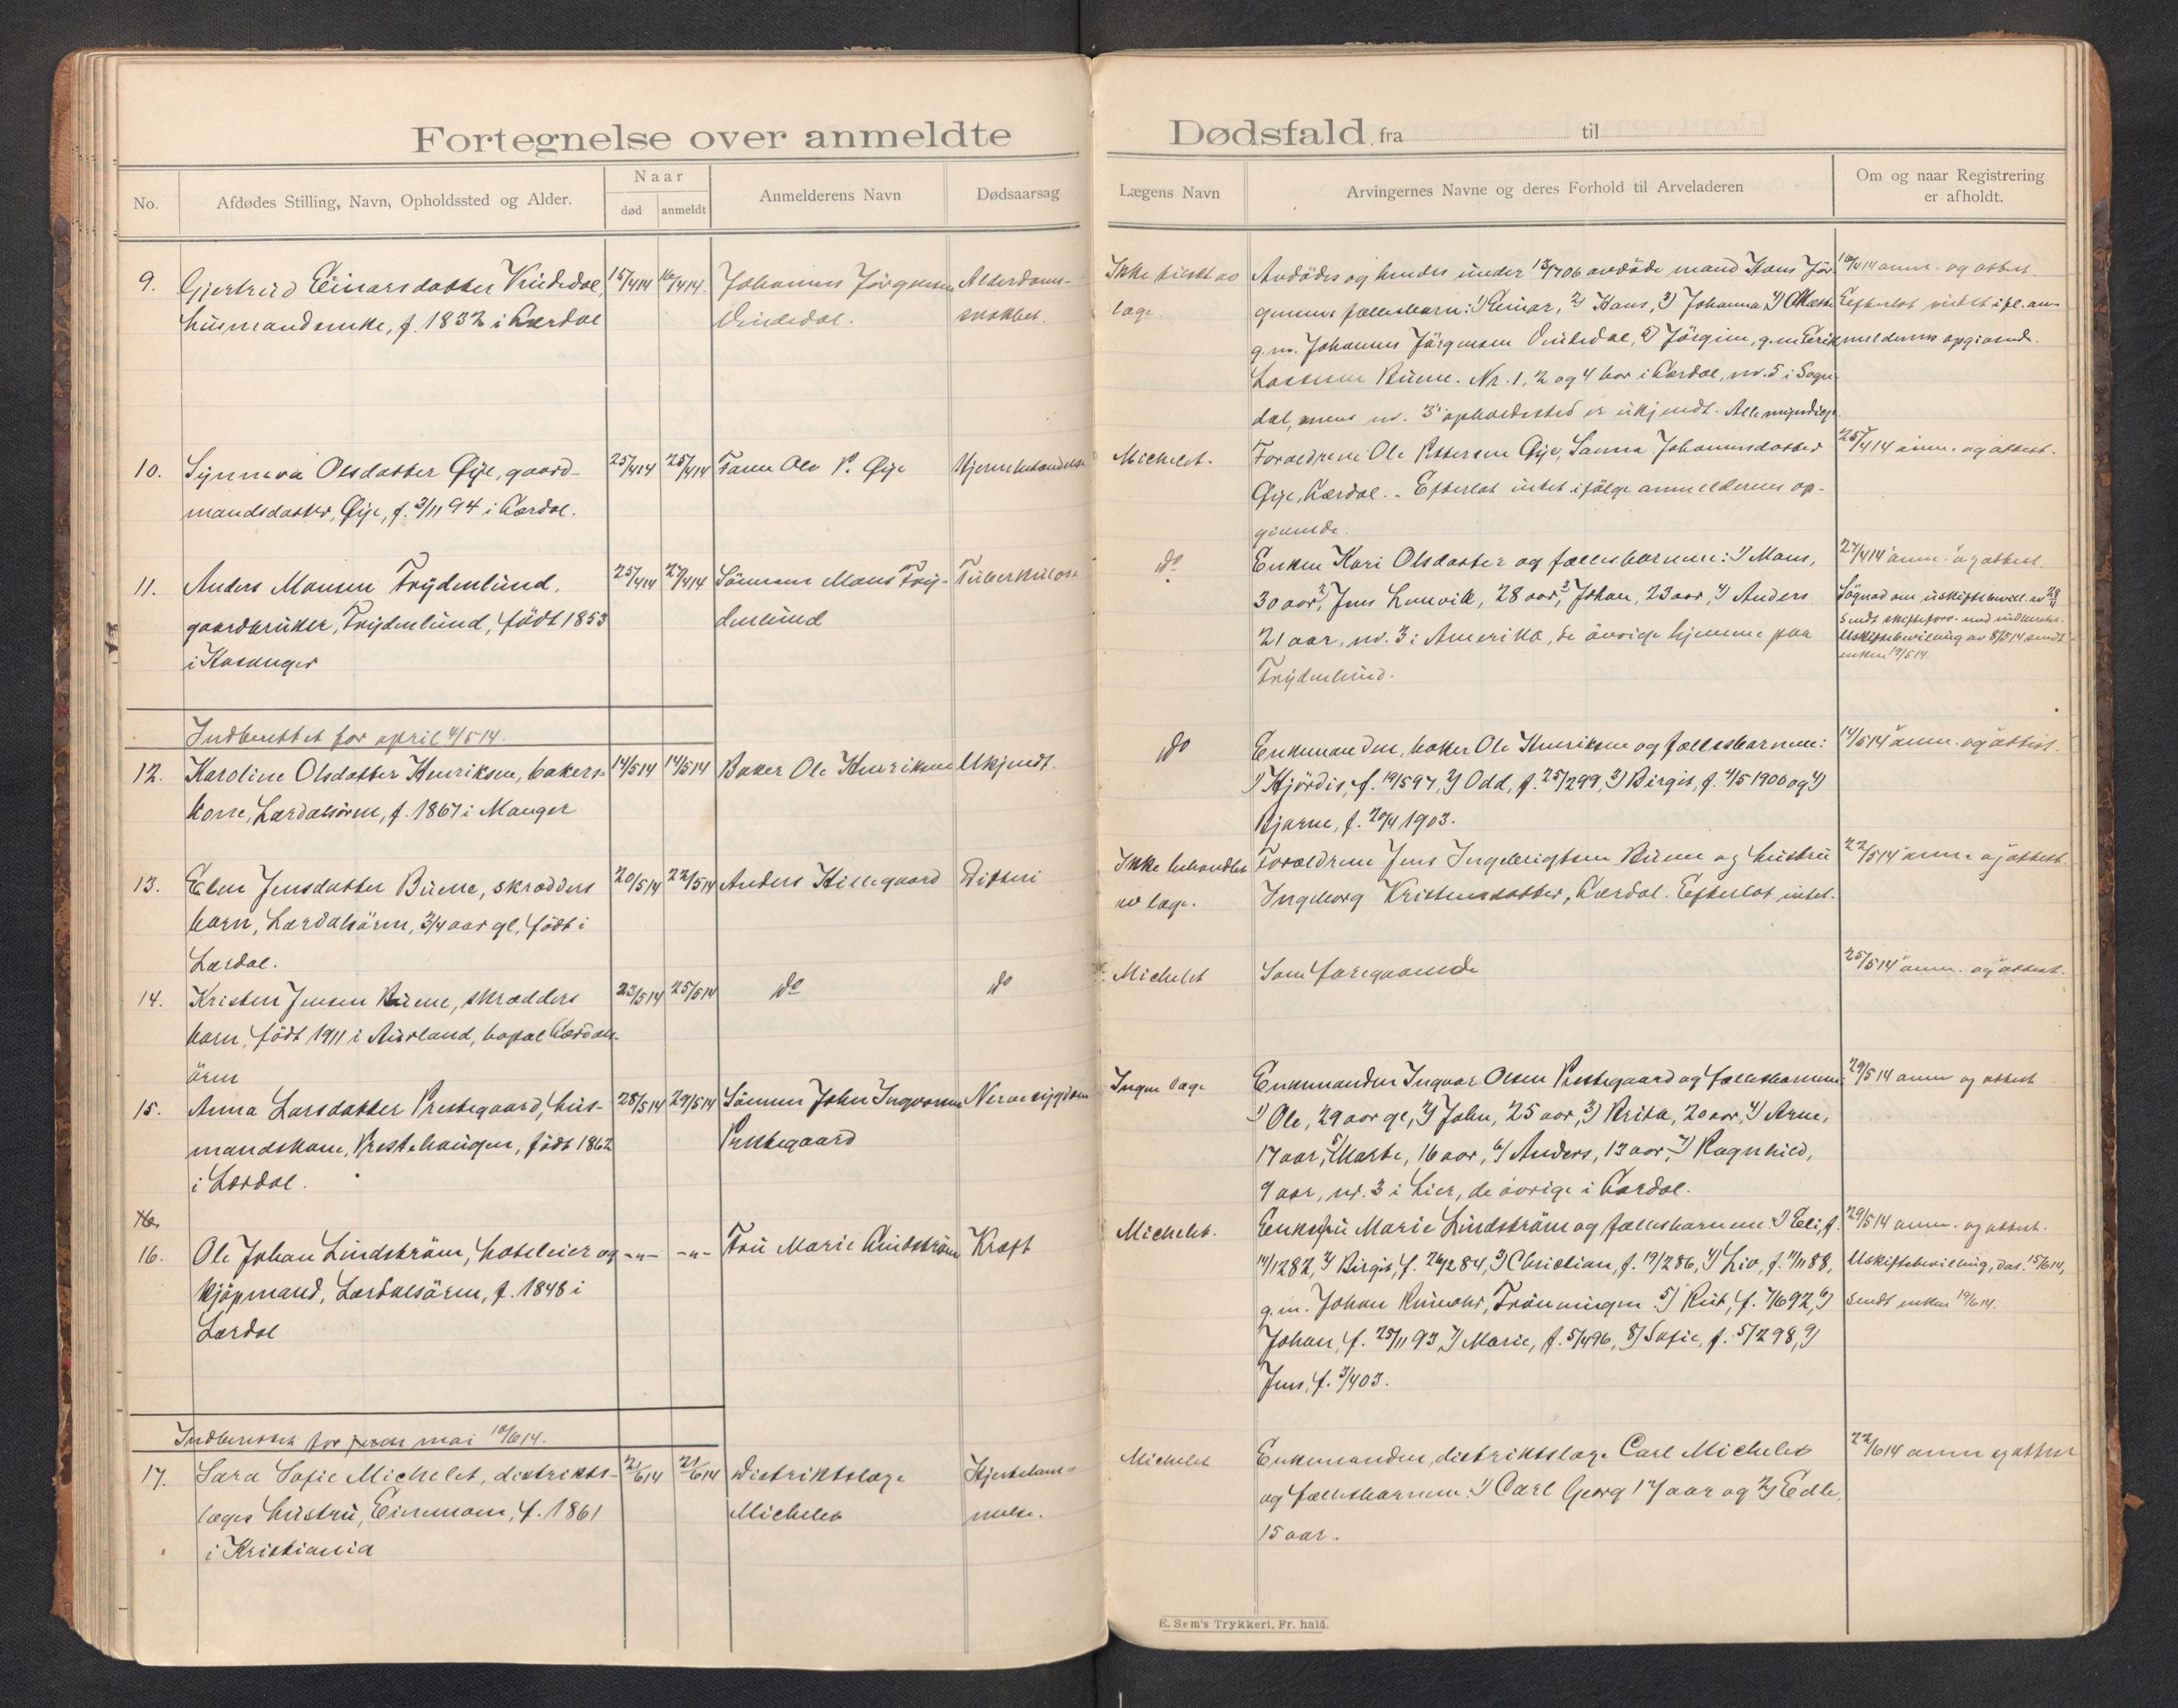 Fortegnelse over anmeldte
Dødsfald fra til
No.
Afdødes Stilling, Navn, Opholdssted og Alder.
Naar
død
anmeldt
Anmelderens Navn
Dødsaarsag
Lægens Navn
Arvingernes Navne og deres Forhold til Arveladeren
Om og naar Registrering
er afholdt.
9.
Gjertrud Einarsdatter Vindedal,
husmandsenke, f. 1832 i Lærdal
15/4 14
16/4 14
Johannes Jørgensen
Vindedal.
Alderdoms-
svakhet.
Ikke tilkaldt
læge.
Avdödes og hendes under 12/7 06 avdöde mand Hans Jör-
gensens fællesbarn: 1) Einar, 2) Hans, 3) Johanna, 4)
g.m. Johannes Jörgensen Vindedal, 5) Jörgine, g.m. Eirik
Lassesen Büene. Nr. 1, 2 og 4 bor i Lærdal, nr. 5 i Sogn-
dal, mens nr. 3's opholdssted er ukjendt. Alle myndige.
16/4 14 anm. og attest.
Efterlot intet ifl. an-
melderens opgivende.
10.
Synneva Olsdatter Øye, gaard-
mandsdatter, Øye, f. 3/11 94 i Lærdal.
25/4 14
25/4 14
Faren Ole P. Øye
Hjernebetændelse
Michelet.
Forældrene Ole Pettersen Øye, Sanna Johannesdatter
Øye, Lærdal. - Efterlot intet ifölge anmelderens op-
givende.
25/4 14 anm. og attest.
11.
Anders Monsen Frydenlund,
gaardbruker, Frydenlund, födt 1853
i Kaupanger
25/4 14
27/4 14
Sönnen Mons Fry-
denlund
Tuberkulose
do
Enken Kari Olsdatter og fællesbarnene: 1) Mons,
30 aar, 2) Jens Lunvik, 28 aar, 3) Johan, 23 aar, 4) Anders
21 aar, nr. 3 i Amerika, de övrige hjemme paa
Frydenlund.
27/4 14 anm. og attest.
Sögnad om uskiftebevill. av 28/4
sendt skifteforv. med
Uskiftebevilling av 8/5 14 sendt
enken 19/5 14.
Indberettet for april 4/5 14.
12.
Karoline Olsdatter Henriksen, bakers-
kone, Lærdalsören, f. 1867 i Manger
14/5 14
14/5 14
Baker Ole Henriksen
Ukjendt.
do
Enkemanden, baker Ole Henriksen og fællesbarnene:
1) Hjördis, f. 19/5 97, 2) Odd, f. 25/2 99, 3) Birgit, f. 4/5 1900 og 4)
Bjarne, f. 20/4 1903.
14/5 14 anm. og attest.
13.
Elen Jensdatter Büene, skrædders
barn, Lærdalsören, 3/4 aar gl. födt i
Lærdal.
20/5 14
22/5 14
Anders Hillegaard
Difteri
Ikke behandlet
av læge.
Forældrene Jens Ingebrigtsen Büene og hustru
Ingeborg Kristensdatter, Lærdal. Efterlot intet.
22/5 14 anm. og attest.
14.
Kristen Jensen Büene, skrædders
barn, födt 1911 i Aurland, bopæl Lærdals-
ören
23/5 14
25/5 14
do
do
Michelet
Som foregaaende
25/5 14 anm. og attest.
15.
Anna Larsdatter Prestegaard, hus-
mandskone, Prestehaugen, födt 1862
i Lærdal.
28/5 14
29/5 14
Sönnen John Ingvarsen
Prestegaard
Nervesygdom
Ingen læge
Enkemanden Ingvar Olsen Prestegaard og fællesbarnene:
1) Ole, 29 aar gl, 2) John, 25 aar, 3) Brita, 20 aar, 4) Arne,
17 aar, 5) Marte, 16 aar, 6) Anders, 13 aar, 7) Ragnhild,
9 aar, nr. 3 i Lier, de övrige i Lærdal.
29/5 14 anm. og attest
16.
Ole Johan Lindström, hoteleier og
kjöpmand, Lærdalsören, f. 1848 i
Lærdal
-"-
-"-
Fru Marie Lindström
Kræft
Michelet.
Enkefru Marie Lindström og fællesbarnene: 1) Eli, f.
14/12 82, 2) Birgit, f. 26/2 84, 3) Christian, f. 19/2 86, 4) Liv, f. 7/11 88,
g.m. Johan Rumohr, Frönningen 5) Rut, f. 7/6 92, 6)
Johan, f. 25/11 93, 7) Marie, f. 5/4 96, 8) Sofie, f. 5/2 98, 9)
Jens, f. 3/4 03.
29/5 14 anm. og attest.
Uskiftebevilling, dat. 15/6 14,
sendt enken 19/6 14.
Indberettet for mai 10/6 14.
17.
Sara Sofie Michelet, distrikts-
læges hustru, Einemoen, f. 1861
i Kristiania
21/6 14
21/6 14
Distriktslæge
Michelet
Hjertelam-
melse.
Michelet
Enkemanden, distriktslæge Carl Michelet
og fællesbarnene: 1) Carl Georg 17 aar og 2) Edle,
15 aar.
22/6 14 anm og attest
E. Sem's Trykkeri, Fr. hald.